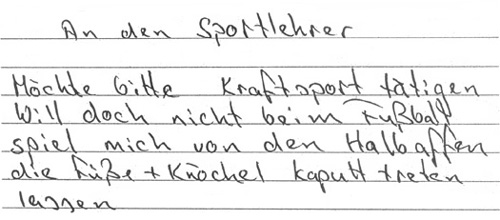 An den Sportlehrer
Möchte bitte Kraftsport tätigen
Will doch nicht beim Fußball
spiel mich von den Halbaffen
die Füße + Knöchel kaputt treten
lassen